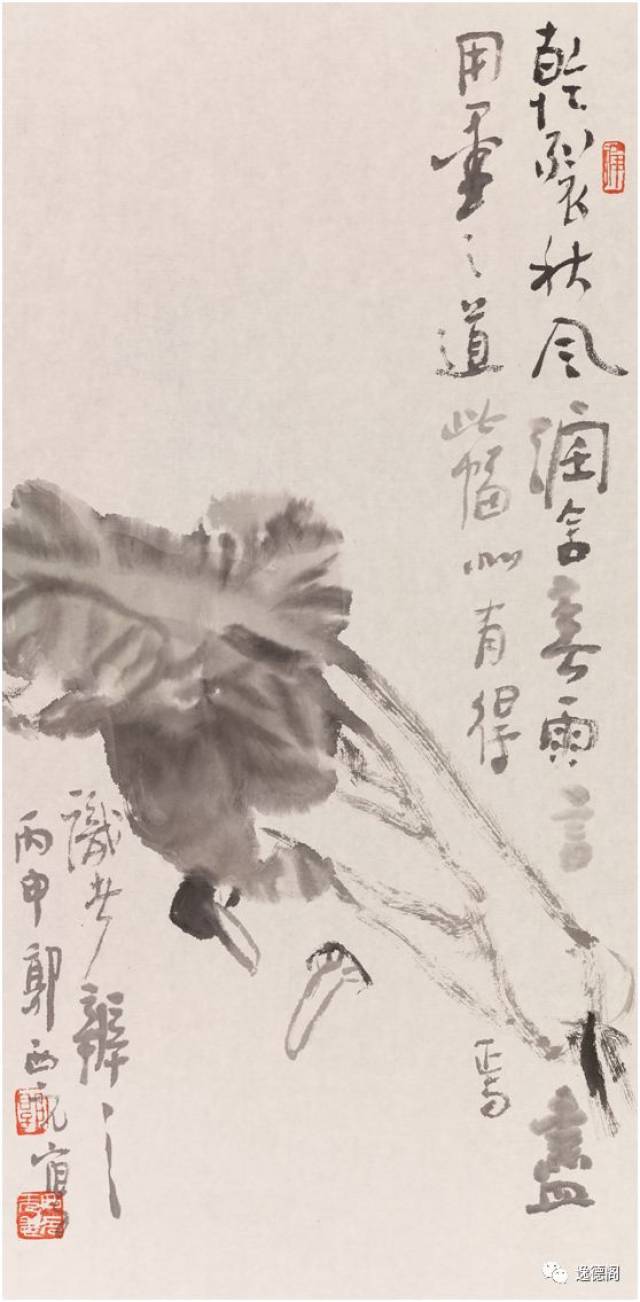 乾裂秋风润含春雨言盡
用墨之道此幅似有得焉
識者辨之
丙申郭西元
逸德阁